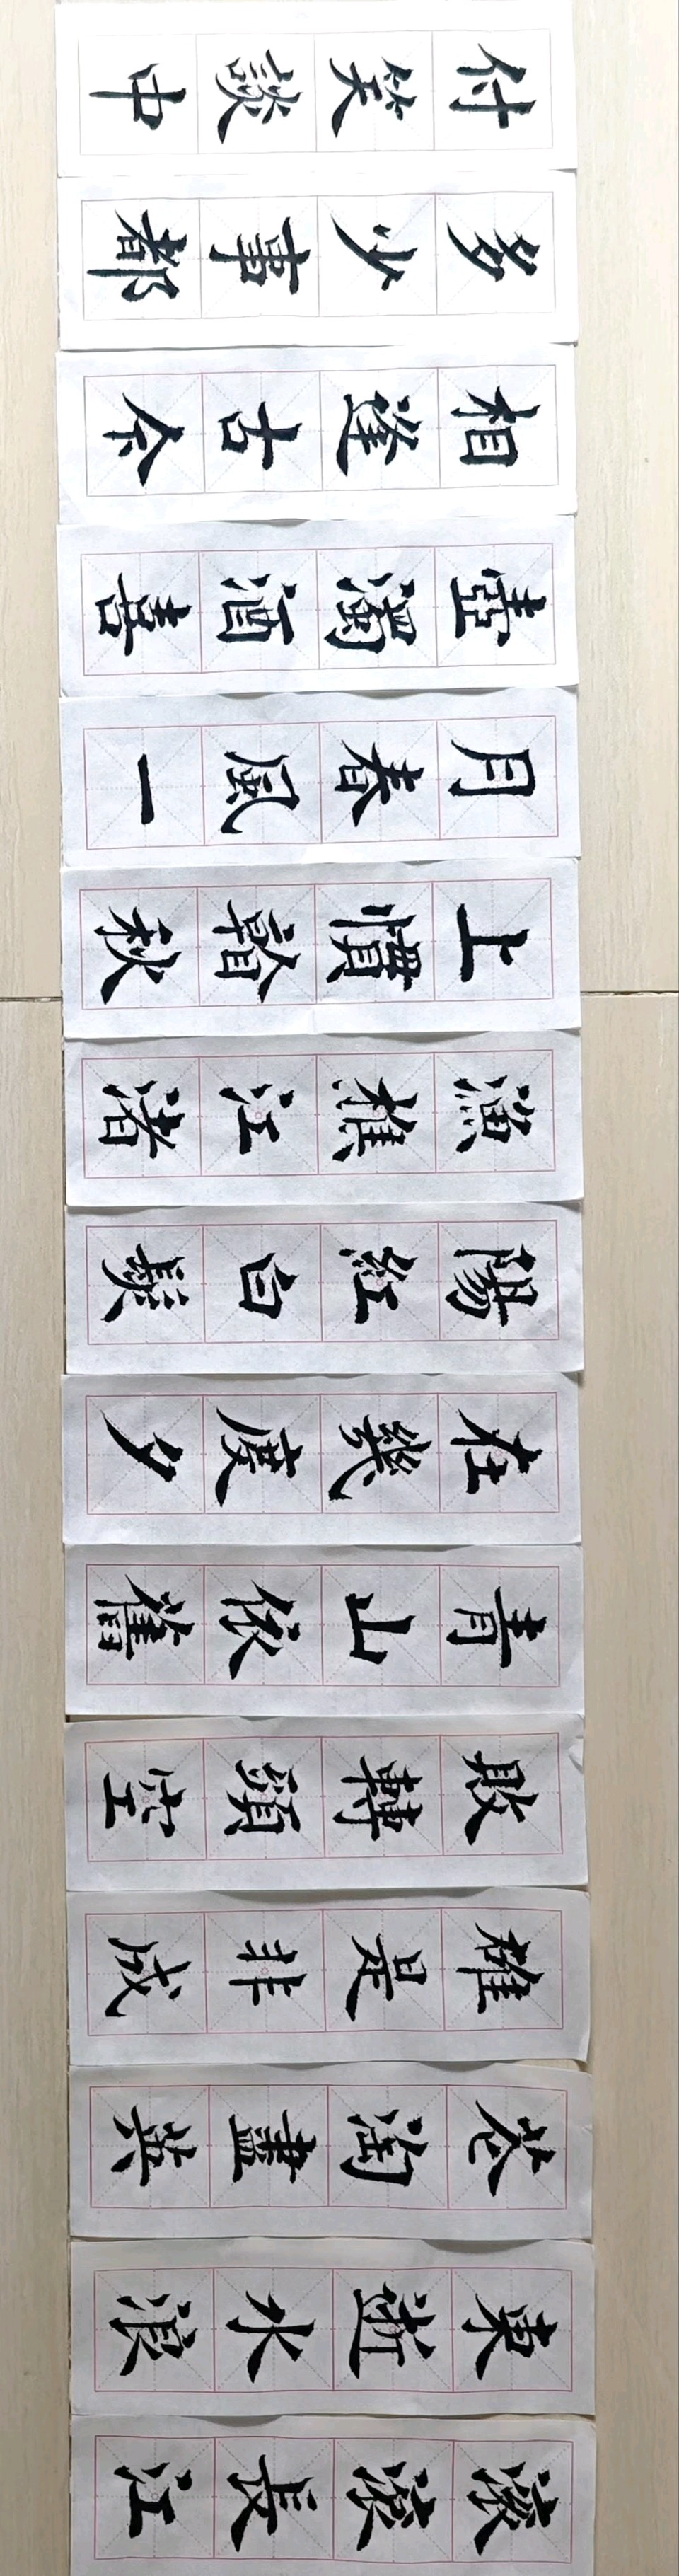 滚滚長江
東逝水浪
花淘盡英
雄是非成
敗轉頭空
青山依舊
在幾度夕
陽紅白髮
漁樵江渚
上慣看秋
月春風一
壺濁酒喜
相逢古今
多少事都
付笑談中